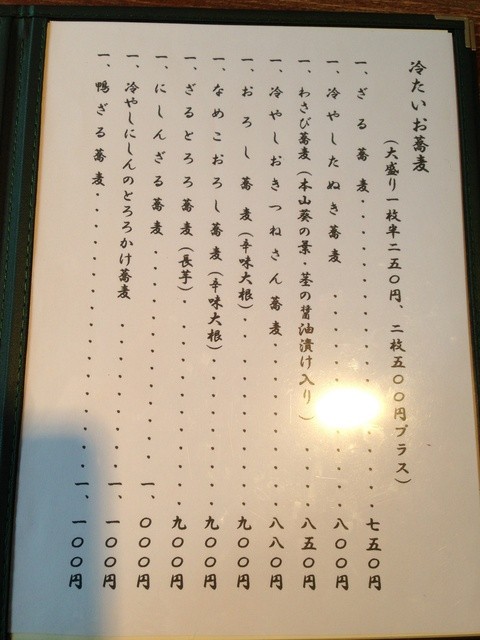 冷たいお蕎麦
(大盛り一枚半二五〇円、二枚五〇〇円プラス)
一、ざる蕎麦・・・・・・・・・・・・・七五〇円
一、冷やしたぬき蕎麦・・・・・・・・・八〇〇円
一、わさび蕎麦(本山葵の葉・茎の醤油漬け入り)・・・八五〇円
一、冷やしおきつねさん蕎麦・・・・・・・八八〇円
一、おろし蕎麦(辛味大根)・・・・・・・・九〇〇円
一、なめこおろし蕎麦(辛味大根)・・・・・・九〇〇円
一、ざるとろろ蕎麦(長芋)・・・・・・・・九〇〇円
一、にしんざる蕎麦・・・・・・・・・・一、〇〇〇円
一、冷やしにしんのとろろかけ蕎麦・・・・・・一、一〇〇円
一、鴨ざる蕎麦・・・・・・・・・・・・一、一〇〇円